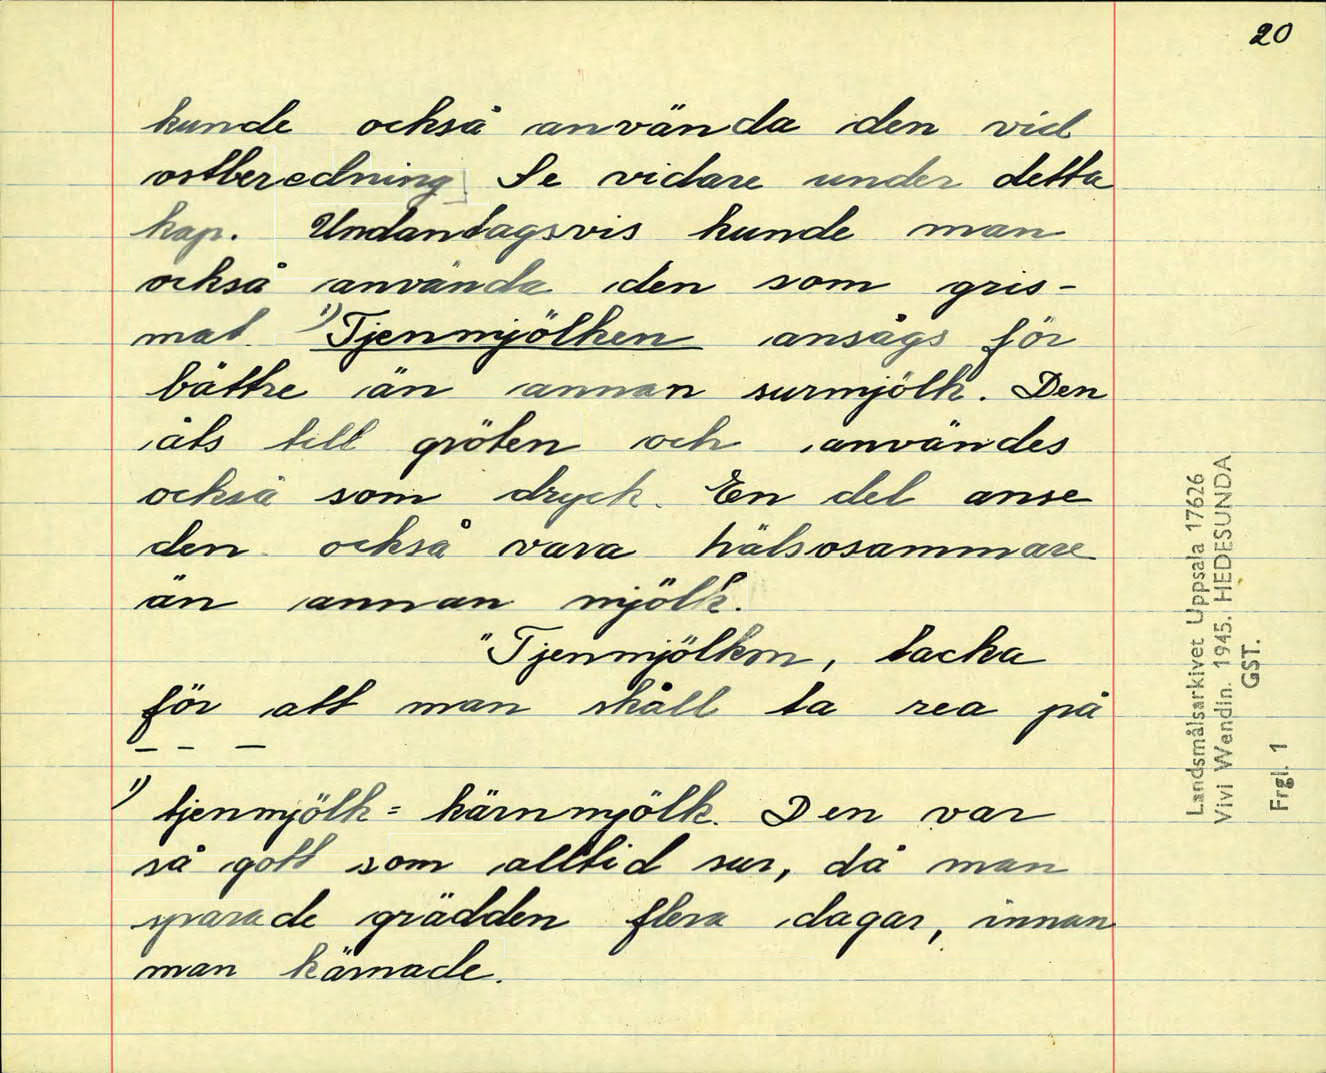 20
kunde också använda den vid
ostberedning] Se vidare under detta
kap. Undantagsvis kunde man
också använda den som gris-
mat. 1) Tjenmjölken ansågs för
bättre än annan surmjölk. Den
åts till gröten och användes
också som dryck. En del anse
den också vara hälsosammare
än annan mjölk.
"Tjenmjölkm, tacka
för att man skåll ta rea på
– – –
1) tjenmjölk = kärnmjölk. Den var
så gott som alltid sur, då man
sparade grädden flera dagar, innan
man kärnade.
Landsmålsarkivet Uppsala 17626
Vivi Wendin. 1945. HEDESUNDA
GST.
Frgl. 1